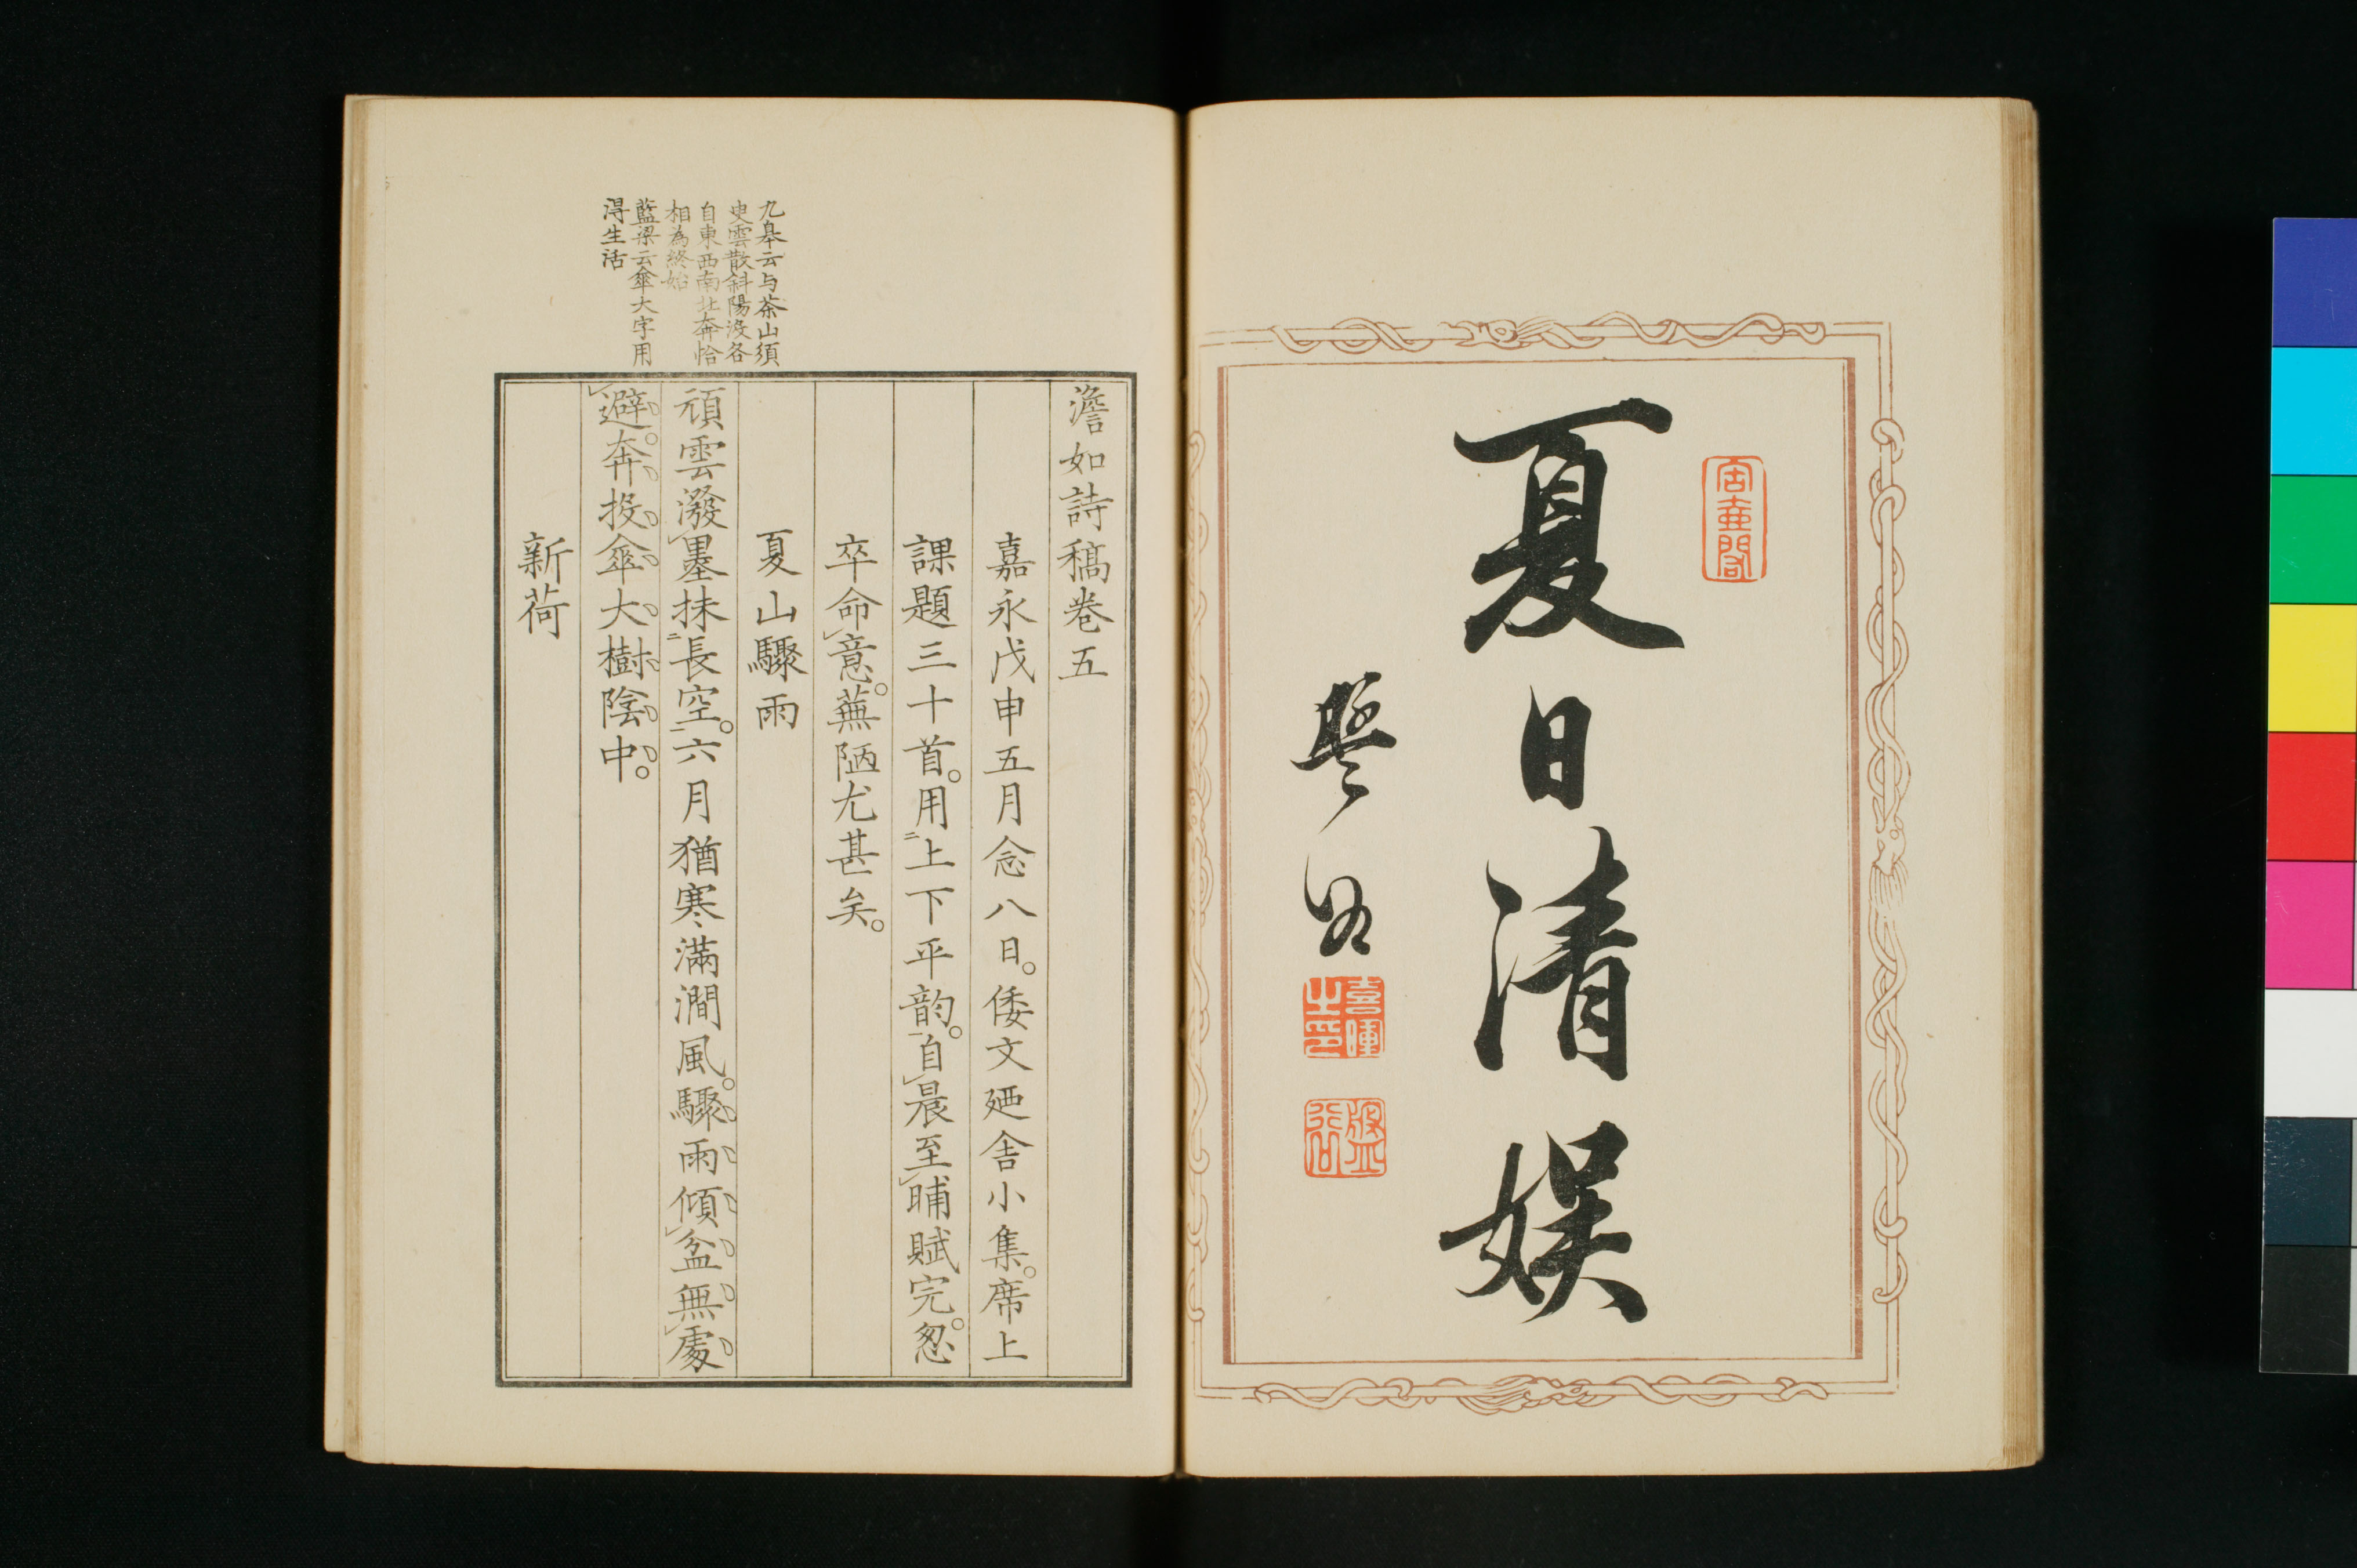 夏日清娯
盤谷
喜暉之印
盤谷
澹如詩稿卷五
嘉永戊申五月念八日。倭文廼舎小集。席上
課題三十首。用上下平韵。自晨至晡賦完。怱
卒命意。蕪陋尤甚矣。
夏山驟雨
頑雲潑墨抹長空。六月猶寒滿澗風。驟雨傾盆無處
避。奔投傘大樹陰中。
新荷
九皋云与茶山須
臾雲散斜陽没各
自東西南北奔恰
相為終始
藍梁云傘大字用
得生活